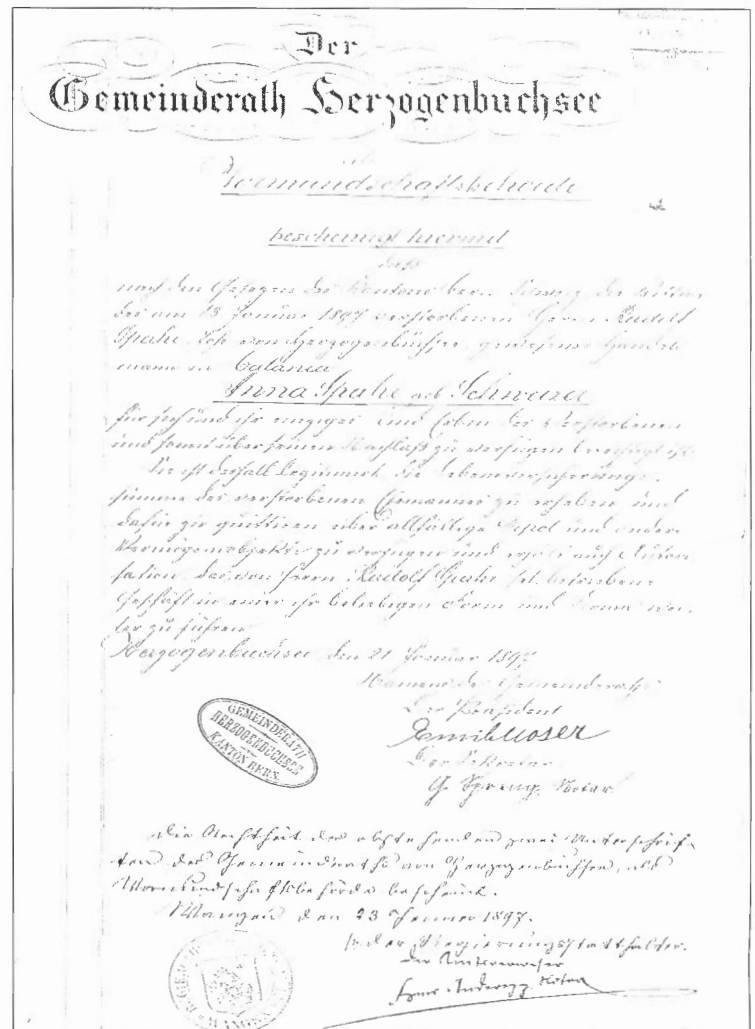 Der
Gemeinderath Herzogenbuchsee
als
Vormundschaftsbehörde
bescheinigt hiermit
dass
nach den Gesetzen des Kantons Bern die Wittwe
des am 13 Januar 1897 verstorbenen Herrn Rudolf
Spahr von Herzogenbuchsee gewesener Handels
mann in Catania
Anna Spahr geb Schwarz
für sich und ihr einziges Kind Erbin des Verstorbenen
und somit über seinen Nachlaß zu verfügen berechtigt ist.
Sie ist deshalb legitimirt die Lebensversicherungs
summe des verstorbenen Ehemannes zu erheben und
dafür zu quittiren über allfällige Depot und andere
Vermögensobjekte zu verfügen und auch
das von Herrn Rudolf Spahr sel. betriebene
Geschäft in einer ihr beliebigen Form und Firma wei
ter zu führen
Herzogenbuchsee den 21 Januar 1897
Namens des Gemeinderaths
Der Präsident
Emil Moser
Der Sekretär
G. Spreng, Notar
GEMEINDERATH
HERZOGENBUCHSEE
KANTON BERN.
Die Aechtheit der obstehenden zwei Unterschrif-
ten des Gemeinderaths von Herzogenbuchsee, als
Vormundschaftsbehörde bescheint.
Wangen den 23 Jenner 1897.
der Regierungsstatthalter.
Der Amtsverweser
Anderegg Notar